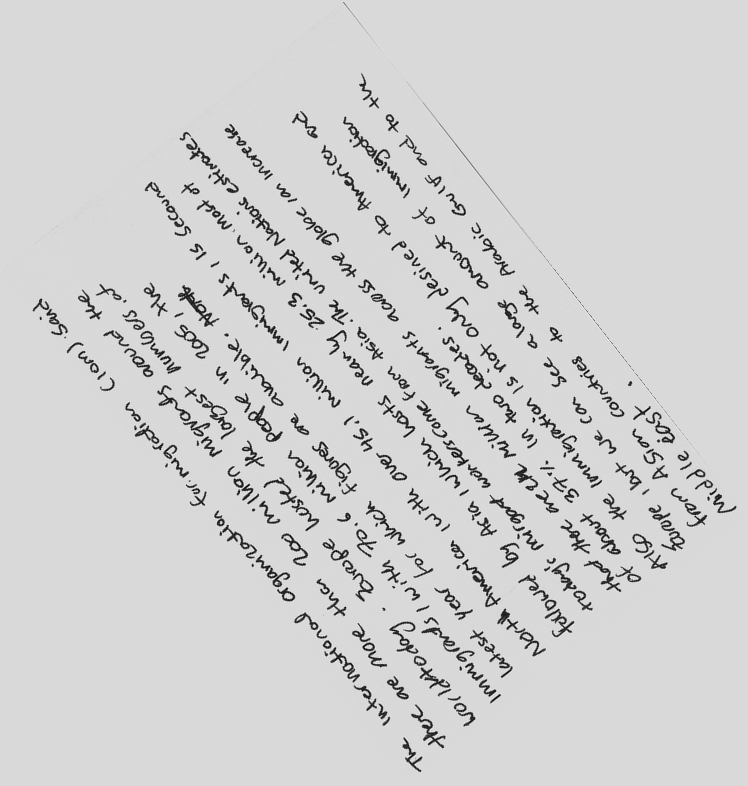 The international organization for migration (iom) said
there are more than 200 million migrants around the
world today. Europe hosted the largest numbers of
immigrants, with 70.6 million people in 2005, the
latest year for which figures are avalible.
North America, with over 45,1 million immigrants, is second
followed by Asia, which hosts nearly 25.3 million. most of
todays migrant workers come from Asia. The united Nations estimates
that there are million migrants across the globe, an increase
of about 37% in two decades.
Also the immigration is not only desired to America and
Europe, but we can see a large amount of immigration
from Asian countries to the Arabic Gulf and to the
Middle east.